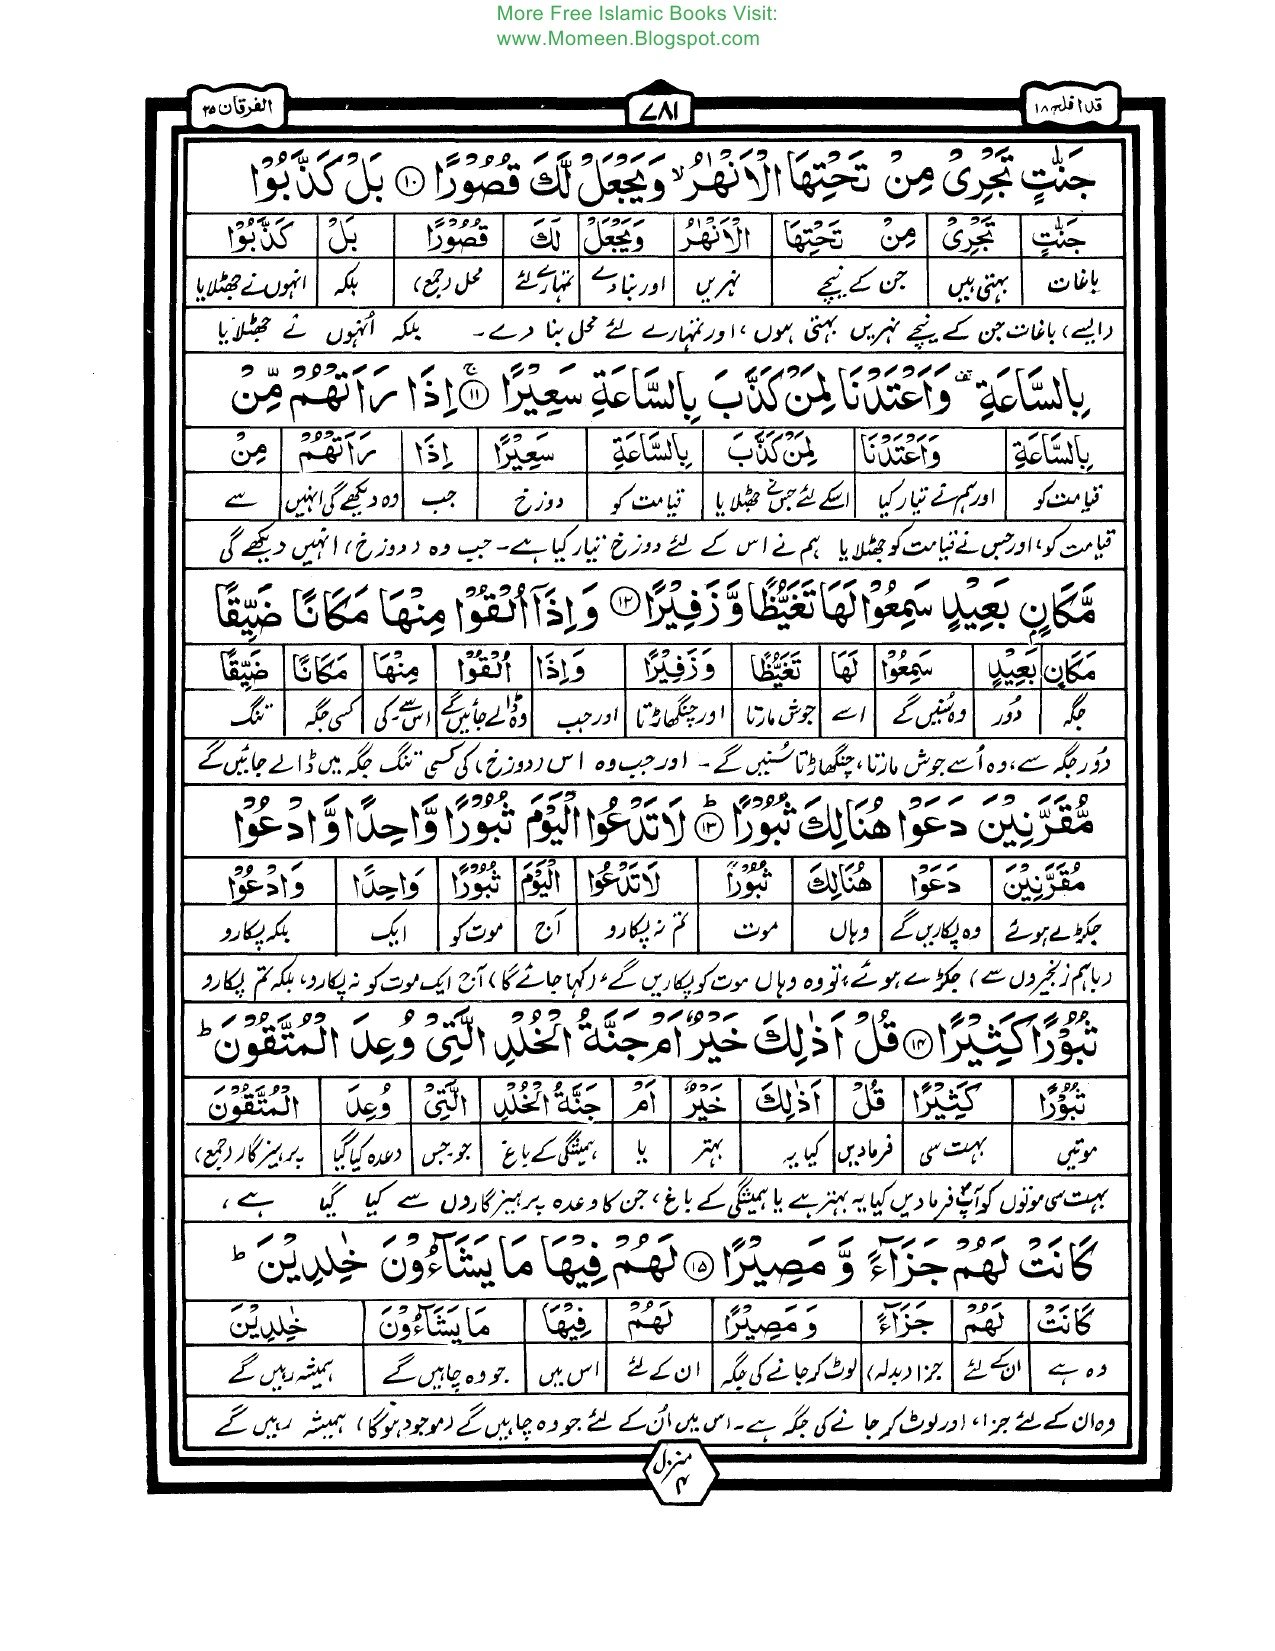 More Free Islamic Books Visit:
www.Momeen.Blogspot.com
قد افلح ۱۸
۷۸۱
الفرقان ۲۵
جَنّٰتٍ تَجْرِیْ مِنْ تَحْتِهَا الْاَنْهٰرُ ۙ وَیَجْعَلْ لَّكَ قُصُوْرًا ۝۱۰ بَلْ كَذَّبُوْا
جَنّٰتٍ تَجْرِیْ مِنْ تَحْتِهَا الْاَنْهٰرُ وَیَجْعَلْ لَكَ قُصُوْرًا بَلْ كَذَّبُوْا
باغات بہتی ہیں جن کے نیچے نہریں اور بنا دے تمہارے لئے محل (جمع) بلکہ انہوں نے جھٹلایا
(ایسے) باغات جن کے نیچے نہریں بہتی ہوں، اور تمہارے لئے محل بنا دے۔ بلکہ اُنہوں نے جھٹلایا
بِالسَّاعَةِ ۫ وَاَعْتَدْنَا لِمَنْ كَذَّبَ بِالسَّاعَةِ سَعِیْرًا ۝۱۱ۚ اِذَا رَاَتْهُمْ مِّنْ
بِالسَّاعَةِ وَاَعْتَدْنَا لِمَنْ كَذَّبَ بِالسَّاعَةِ سَعِیْرًا اِذَا رَاَتْهُمْ مِنْ
قیامت کو اور ہم نے تیار کیا اسکے لئے جس نے جھٹلایا قیامت کو دوزخ جب وہ دیکھے گی انہیں سے
قیامت کو، اور جس نے قیامت کو جھٹلایا ہم نے اس کے لئے دوزخ تیار کیا ہے۔ جب وہ (دوزخ) انہیں دیکھے گی
مَّكَانٍۭ بَعِیْدٍ سَمِعُوْا لَهَا تَغَیُّظًا وَّزَفِیْرًا ۝۱۲ وَاِذَاۤ اُلْقُوْا مِنْهَا مَكَانًا ضَیِّقًا
مَكَانٍ بَعِیْدٍ سَمِعُوْا لَهَا تَغَیُّظًا وَزَفِیْرًا وَاِذَا اُلْقُوْا مِنْهَا مَكَانًا ضَیِّقًا
جگہ دُور وہ سُنیں گے اسے جوش مارتا اور چنگھاڑتا اور جب وہ ڈالے جائیں گے اس سے۔کی کسی جگہ تنگ
دُور جگہ سے، وہ اُسے جوش مارتا، چنگھاڑتا سُنیں گے۔ اور جب وہ اس (دوزخ) کی کسی تنگ جگہ میں ڈالے جائیں گے
مُّقَرَّنِیْنَ دَعَوْا هُنَالِكَ ثُبُوْرًا ۝۱۳ؕ لَا تَدْعُوا الْیَوْمَ ثُبُوْرًا وَّاحِدًا وَّادْعُوْا
مُقَرَّنِیْنَ دَعَوْا هُنَالِكَ ثُبُوْرًا لَا تَدْعُوا الْیَوْمَ ثُبُوْرًا وَاحِدًا وَادْعُوْا
جکڑے ہوئے وہ پکاریں گے وہاں موت تم نہ پکارو آج موت کو ایک بلکہ پکارو
(باہم زنجیروں سے) جکڑے ہوئے، تو وہ وہاں موت کو پکاریں گے۔ (کہا جائے گا) آج ایک موت کو نہ پکارو، بلکہ تم پکارو
ثُبُوْرًا كَثِیْرًا ۝۱۴ قُلْ اَذٰلِكَ خَیْرٌ اَمْ جَنَّةُ الْخُلْدِ الَّتِیْ وُعِدَ الْمُتَّقُوْنَ ؕ
ثُبُوْرًا كَثِیْرًا قُلْ اَذٰلِكَ خَیْرٌ اَمْ جَنَّةُ الْخُلْدِ الَّتِیْ وُعِدَ الْمُتَّقُوْنَ
موتیں بہت سی فرما دیں کیا یہ بہتر یا ہمیشگی کے باغ جو۔جس وعدہ کیا گیا پرہیزگار (جمع)
بہت سی موتوں کو آپؐ فرما دیں کیا یہ بہتر ہے یا ہمیشگی کے باغ، جن کا وعدہ پرہیزگاروں سے کیا گیا ہے،
كَانَتْ لَهُمْ جَزَآءً وَّ مَصِیْرًا ۝۱۵ لَهُمْ فِیْهَا مَا یَشَآءُوْنَ خٰلِدِیْنَ ؕ
كَانَتْ لَهُمْ جَزَآءً وَ مَصِیْرًا لَهُمْ فِیْهَا مَا یَشَآءُوْنَ خٰلِدِیْنَ
وہ ہے ان کے لئے جزا (بدلہ) لوٹ کر جانے کی جگہ ان کے لئے اس میں جو وہ چاہیں گے ہمیشہ رہیں گے
وہ ان کے لئے جزا، اور لوٹ کر جانے کی جگہ ہے۔ اس میں اُن کے لئے جو وہ چاہیں گے (موجود ہوگا) ہمیشہ رہیں گے
منزل ۴